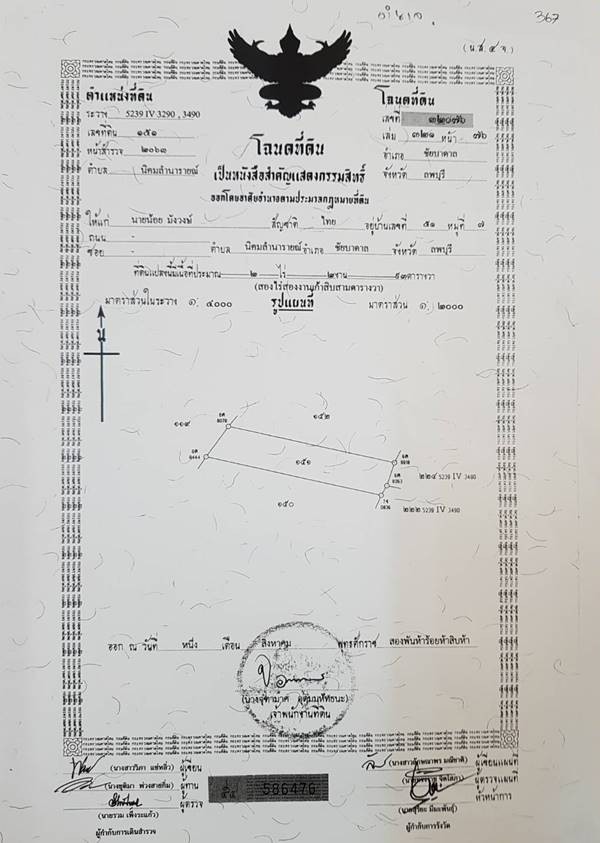 อำนาจ
367
(น.ส.๔ จ.)
ตำแหน่งที่ดิน
ระวาง 5239 IV 3290 , 3490
เลขที่ดิน ๑๕๑
หน้าสำรวจ ๒๐๖๓
ตำบล นิคมลำนารายณ์
โฉนดที่ดิน
เลขที่ ๓๒๐๗๖
เล่ม ๓๒๑ หน้า ๗๖
อำเภอ ชัยบาดาล
จังหวัด ลพบุรี
โฉนดที่ดิน
เป็นหนังสือสำคัญแสดงกรรมสิทธิ์
ออกโดยอาศัยอำนาจตามประมวลกฎหมายที่ดิน
ให้แก่ นายน้อย มังวงษ์ สัญชาติ ไทย อยู่บ้านเลขที่ ๕๑ หมู่ที่ ๗
ถนน -
ซอย - ตำบล นิคมลำนารายณ์ อำเภอ ชัยบาดาล จังหวัด ลพบุรี
ที่ดินแปลงนี้มีเนื้อที่ประมาณ ๒ ไร่ ๒ งาน ๙๓ ตารางวา
(สองไร่สองงานเก้าสิบสามตารางวา)
มาตราส่วนในระวาง ๑: ๔๐๐๐ รูปแผนที่ มาตราส่วน ๑: ๒๐๐๐
น
๑๑๙
๑๕๒
๑๕๑
๒๒๔ 5239 IV 3490
๒๒๒ 5239 IV 3490
๑๕๐
ออก ณ วันที่ หนึ่ง เดือน สิงหาคม พุทธศักราช สองพันห้าร้อยห้าสิบห้า
เจ้าพนักงานที่ดิน
ผู้เขียน
ผู้ทาน
ผู้ตรวจ
(นายรวม เพ็งระแก้ว)
ผู้กำกับการเดินสำรวจ
586476
ผู้เขียนแผนที่
ผู้ตรวจแผนที่
หัวหน้าการ
ผู้กำกับการรังวัด